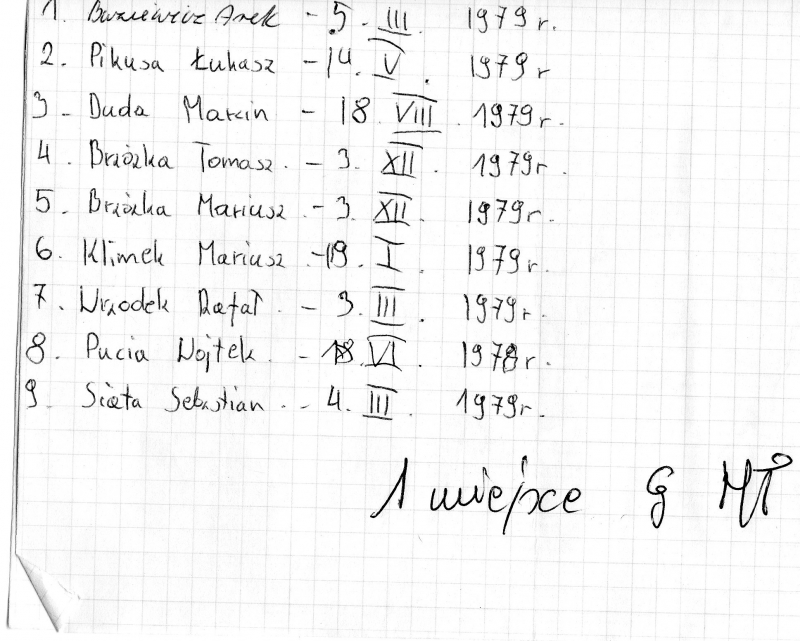 1. Arek - 5. III. 1979r.
2. Pikusa Łukasz - 14. V. 1979r
3. Duda Marcin - 18. VIII. 1979r.
4. Brzózka Tomasz. - 3. XII. 1979r.
5. Brzózka Mariusz - 3. XII. 1979r.
6. Klimek Mariusz - 19. I. 1979r.
7. Wrzodek Rafał. - 3. III. 1979r.
8. Pucia Wojtek. - VI. 1978r.
9. Sieta Sebastian. - 4. III. 1979r.
1 miejsce G